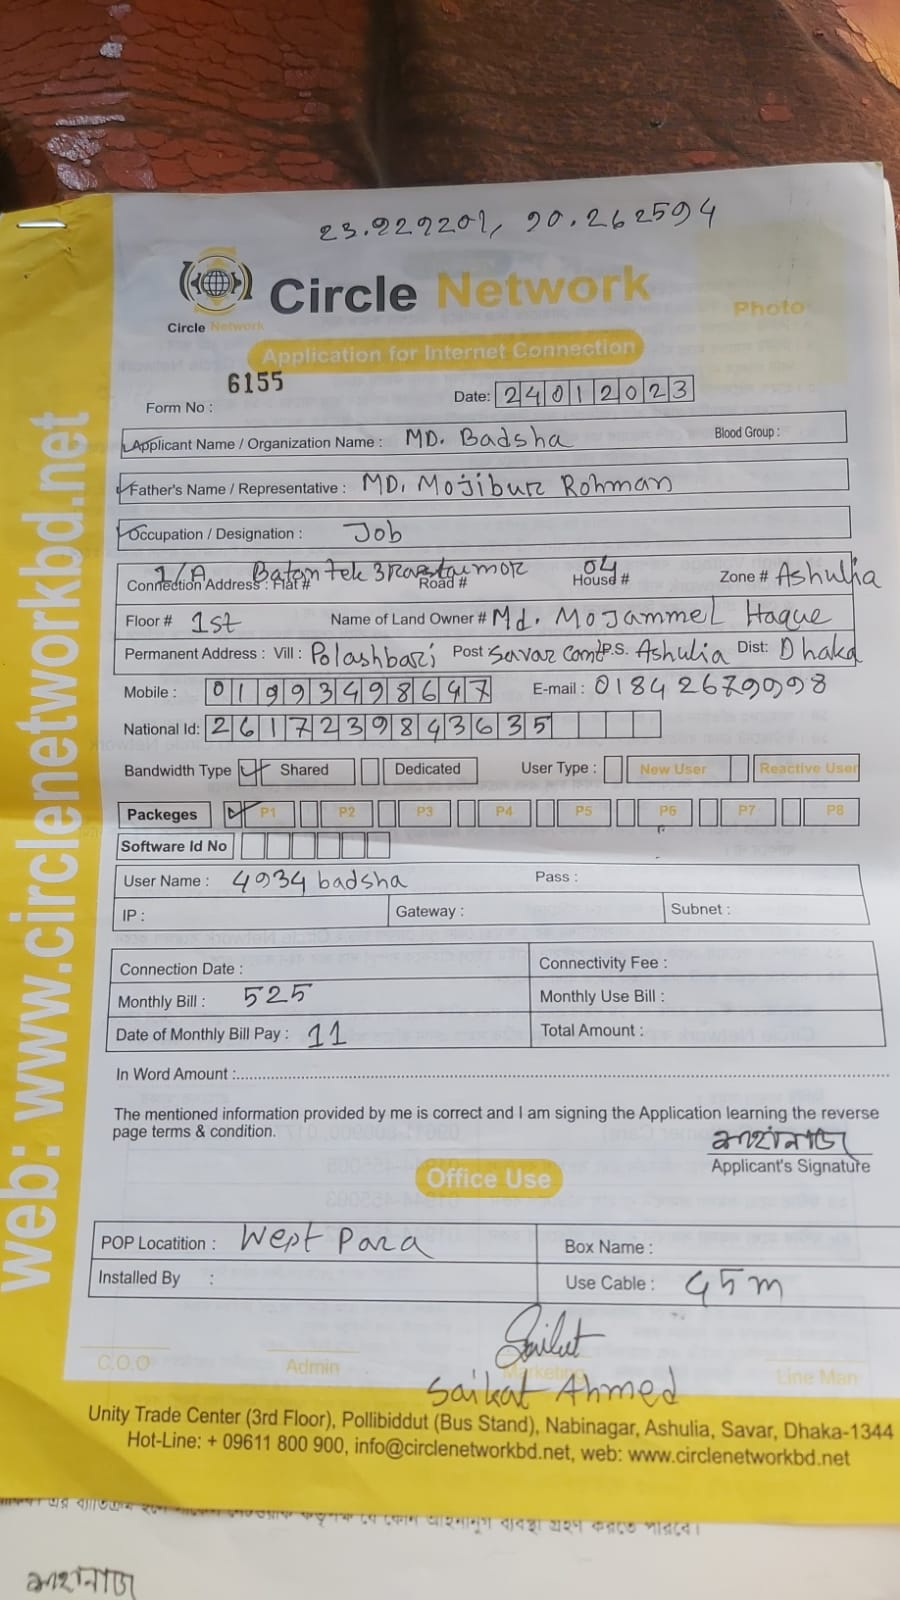 23.929201, 90.262594
Circle Network
Circle Network
Photo
Application for Internet Connection
Form No : 6155
Date: 24012023
Applicant Name / Organization Name : MD. Badsha Blood Group :
Father's Name / Representative : MD. Mojibur Rohman
Occupation / Designation : Job
Connection Address : Flat # 1/A Road # House # 04 Zone # Ashulia
Floor # 1st Name of Land Owner # Md. Mojammel Haque
Permanent Address : Vill : Polashbari Post Savar Cant P.S. Ashulia Dist: Dhaka
Mobile : 01993498647 E-mail : 01842679998
National Id: 2617239843635
Bandwidth Type Shared Dedicated User Type : New User Reactive User
Packeges P1 P2 P3 P4 P5 P6 P7 P8
Software Id No
User Name : 4934badsha Pass :
IP : Gateway : Subnet :
Connection Date : Connectivity Fee :
Monthly Bill : 525 Monthly Use Bill :
Date of Monthly Bill Pay : 11 Total Amount :
In Word Amount :
The mentioned information provided by me is correct and I am signing the Application learning the reverse
page terms & condition.
Applicant's Signature
Office Use
POP Locatition : West Para Box Name :
Installed By : Use Cable : 45m
C.O.O Admin Marketing Line Man
Saikat Ahmed
Unity Trade Center (3rd Floor), Pollibiddut (Bus Stand), Nabinagar, Ashulia, Savar, Dhaka-1344
Hot-Line: + 09611 800 900, info@circlenetworkbd.net, web: www.circlenetworkbd.net
web: www.circlenetworkbd.net